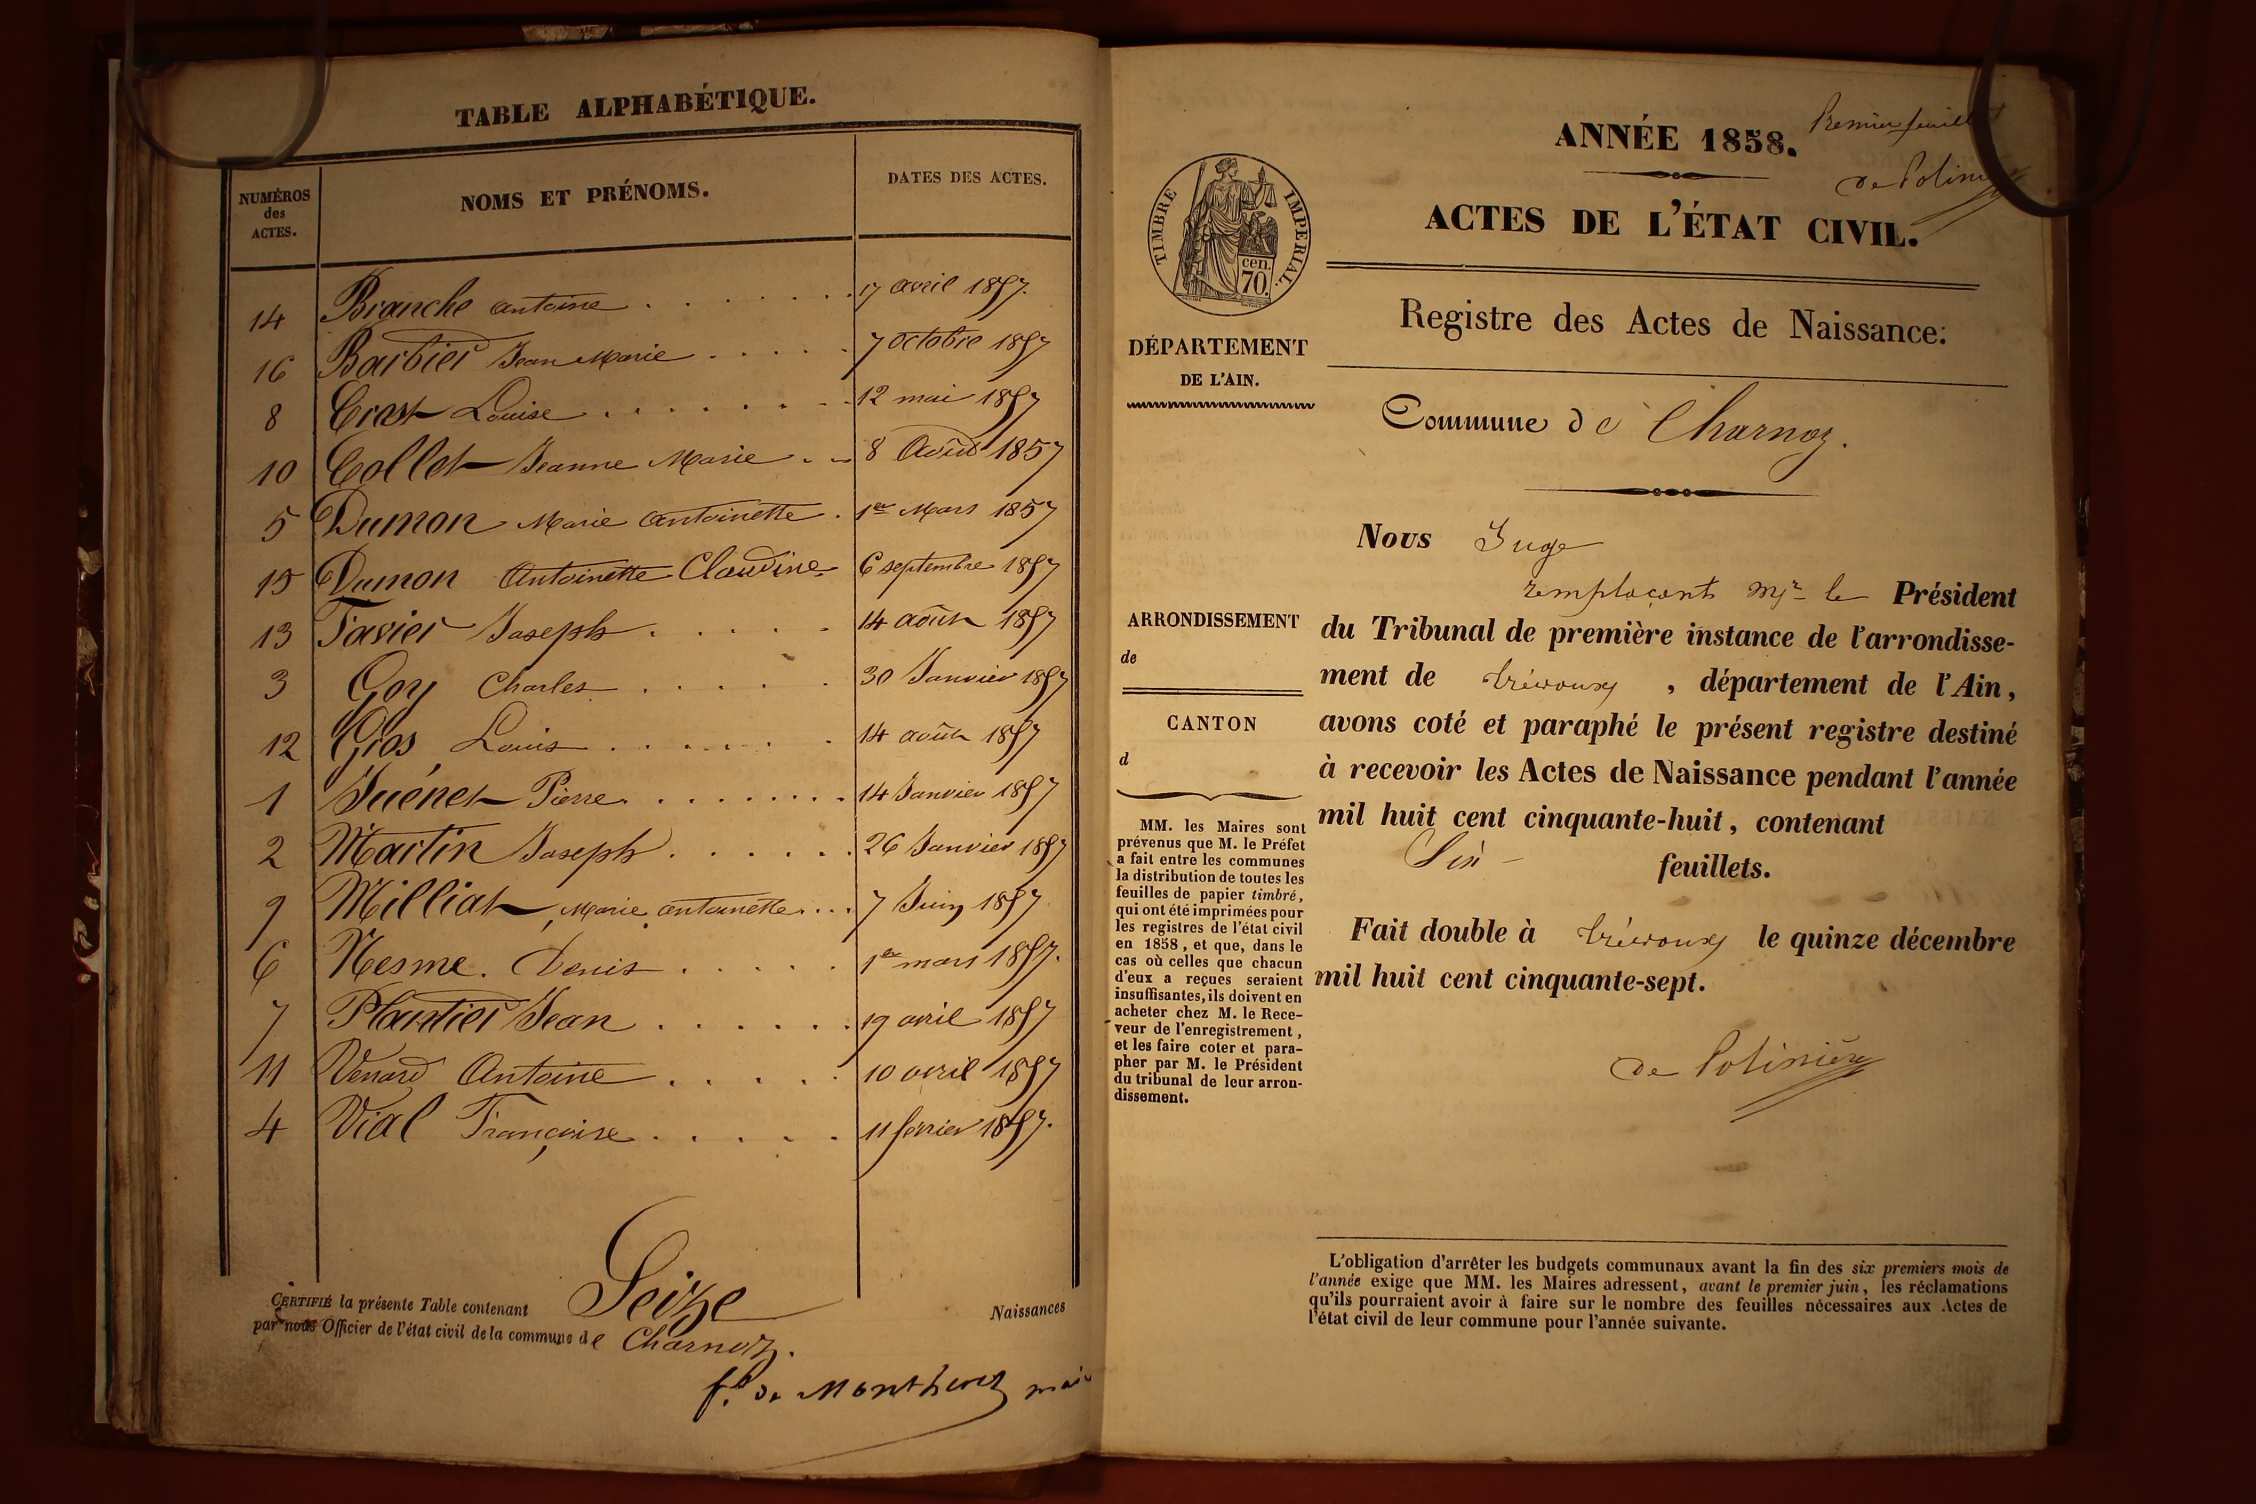 TABLE ALPHABÉTIQUE.
NUMÉROS des ACTES. NOMS ET PRÉNOMS. DATES DES ACTES.
14 Branche Antoine 17 avril 1857.
16 Barbier Jean Marie 7 octobre 1857
8 Crost Louise 12 mai 1857
10 Collet Jeanne Marie 8 Août 1857
5 Dumon Marie Antoinette 1er Mars 1857
15 Dumon Antoinette Claudine 6 septembre 1857
13 Favier Joseph 14 août 1857
3 Goy Charles 30 Janvier 1857
12 Gros Louis 14 août 1857
1 Juénet Pierre 14 Janvier 1857
2 Martin Joseph 26 Janvier 1857
9 Milliat Marie antoinette 7 Juin 1857
6 Nesme. Denis 1er mars 1857.
7 Plantier Jean 19 avril 1857
11 Venard Antoine 10 avril 1857
4 Vial Françoise 11 février 1857.
CERTIFIÉ la présente Table contenant Seize Naissances
par nous Officier de l'état civil de la commune de Charnoz.
de maire
Premier feuillet
de Polinière
ANNÉE 1858.
ACTES DE L'ÉTAT CIVIL.
TIMBRE IMPERIAL.
cen.
70.
Registre des Actes de Naissance:
DÉPARTEMENT
DE L'AIN.
Commune de Charnoz.
Nous Juge
remplaçant Mr le Président
du Tribunal de première instance de l'arrondisse-
ment de trévoux, département de l'Ain,
avons coté et paraphé le présent registre destiné
à recevoir les Actes de Naissance pendant l'année
mil huit cent cinquante-huit, contenant
Six feuillets.
Fait double à trévoux le quinze décembre
mil huit cent cinquante-sept.
de Polinière
ARRONDISSEMENT
de
CANTON
d
MM. les Maires sont
prévenus que M. le Préfet
a fait entre les communes
la distribution de toutes les
feuilles de papier timbré,
qui ont été imprimées pour
les registres de l'état civil
en 1858, et que, dans le
cas où celles que chacun
d'eux a reçues seraient
insuffisantes, ils doivent en
acheter chez M. le Rece-
veur de l'enregistrement,
et les faire coter et para-
pher par M. le Président
du tribunal de leur arron-
dissement.
L'obligation d'arrêter les budgets communaux avant la fin des six premiers mois de
l'année exige que MM. les Maires adressent, avant le premier juin, les réclamations
qu'ils pourraient avoir à faire sur le nombre des feuilles nécessaires aux Actes de
l'état civil de leur commune pour l'année suivante.